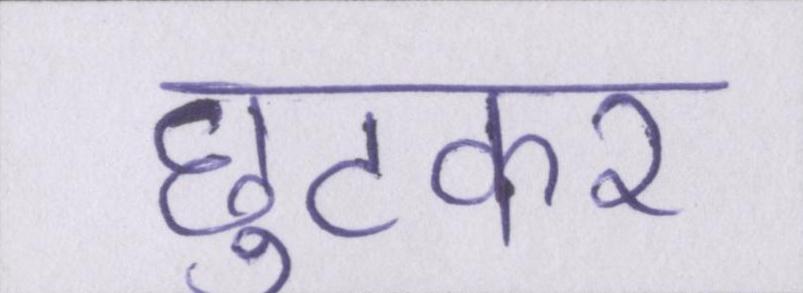 छुटकर